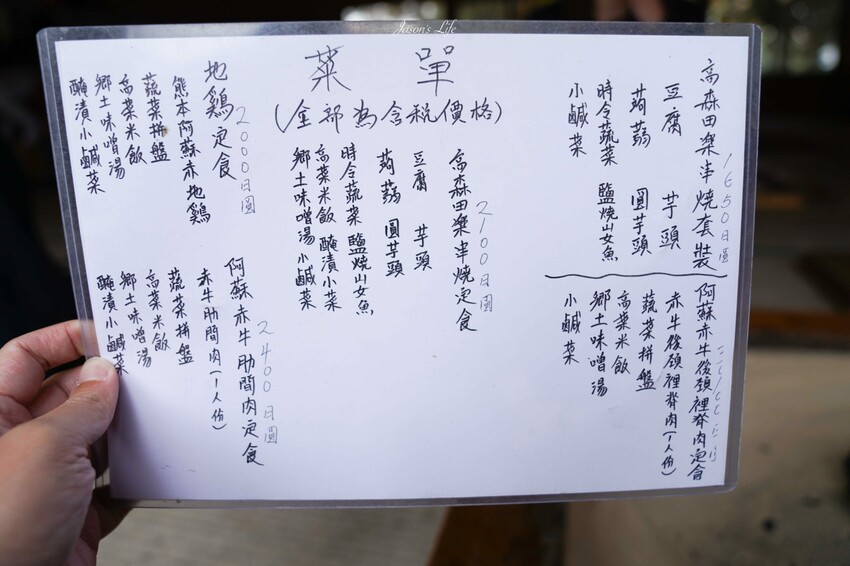 Jason's Life
菜單
(全部為含稅價格)
高森田樂串燒套裝
1650日圓
豆腐 芋頭
蒟蒻 圓芋頭
時令蔬菜 鹽燒山女魚
小鹹菜
阿蘇赤牛後頸裡脊肉定食
赤牛後頸裡脊肉(1人份)
蔬菜拼盤
高菜米飯
鄉土味噌湯
小鹹菜
高森田樂串燒定食
2100日圓
豆腐 芋頭
蒟蒻 圓芋頭
時令蔬菜 鹽燒山女魚
高菜米飯 醃漬小菜
鄉土味噌湯小鹹菜
地鷄定食
2000日圓
熊本阿蘇赤地鷄
蔬菜拼盤
高菜米飯
鄉土味噌湯
醃漬小鹹菜
阿蘇赤牛肋間肉定食
2400日圓
赤牛肋間肉(1人份)
蔬菜拼盤
高菜米飯
鄉土味噌湯
醃漬小鹹菜